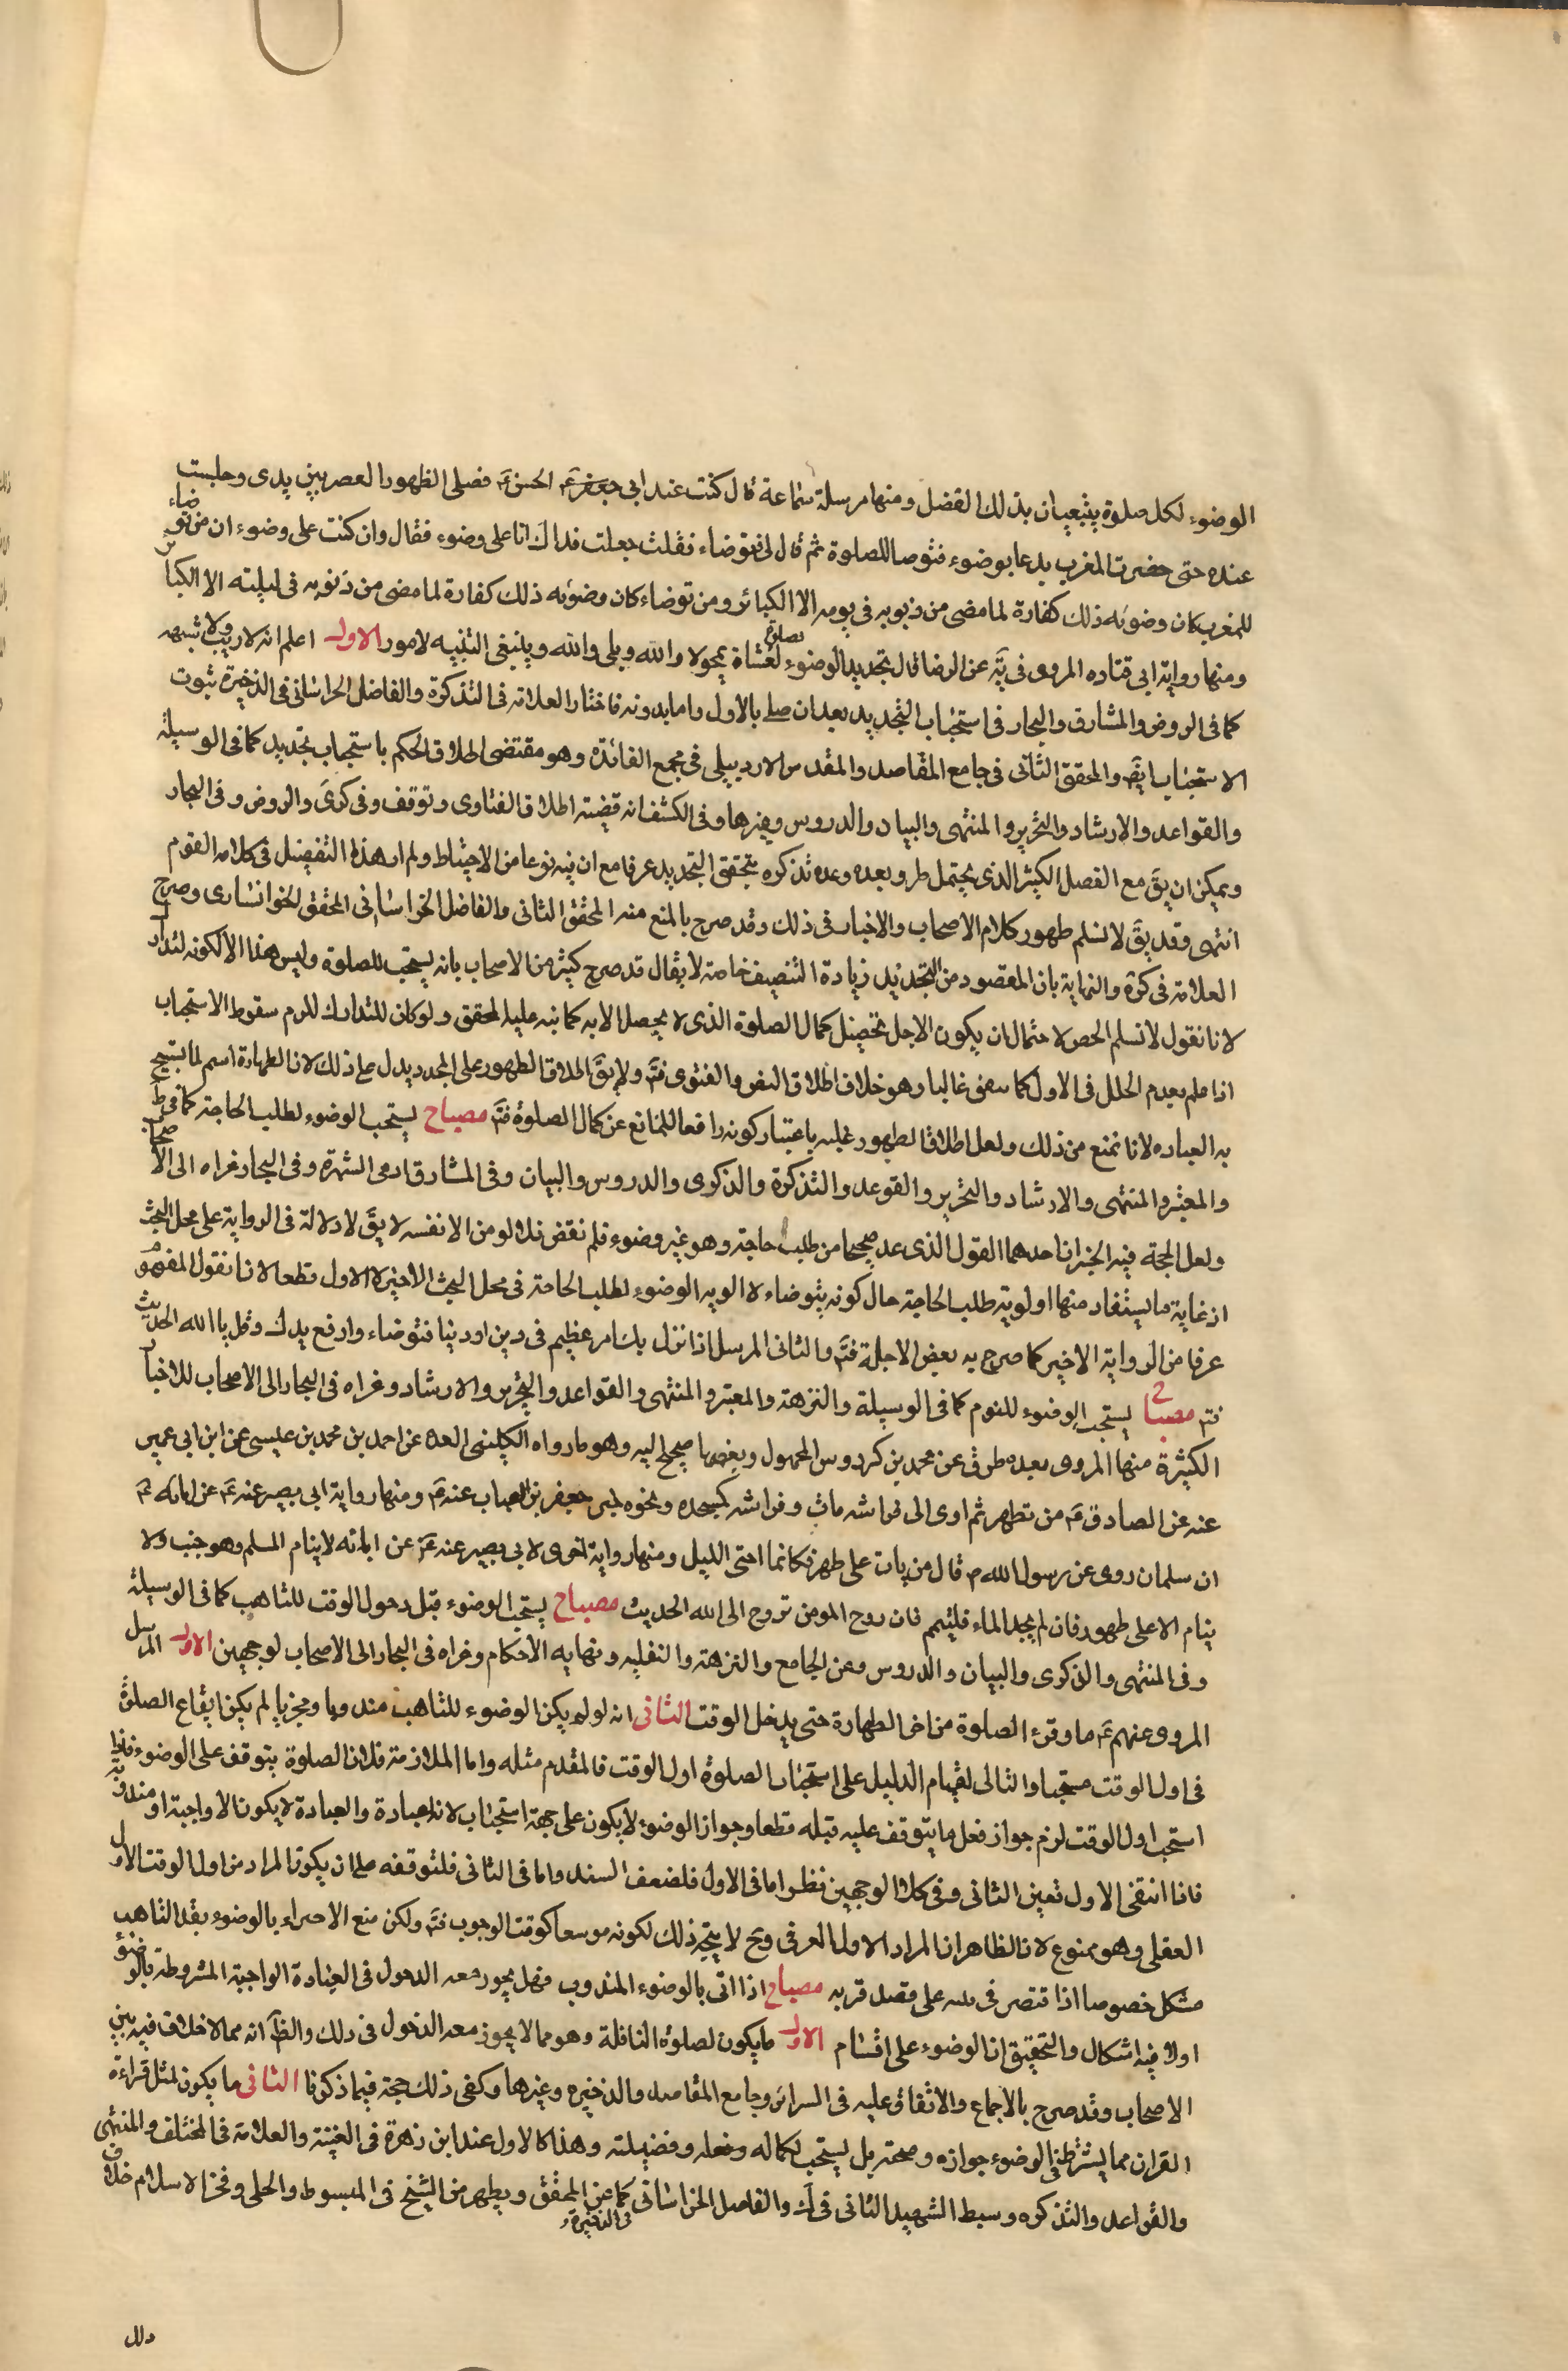 الوضوء لكل صلوة ينبعيان بذلك الفضل ومنها مرسلة سماعة قال كنت عند ابى جعفر عَ الحسن عَ فصلى الظهر والعصر بين يدى وجلست
عنده حتى حضرت المغرب يدعا بوضوء فتوضا للصلوة ثم قال لى توضاء فقلت جعلت فداك انا على وضوء فقال وان كنت على وضوء ان من توضاء
للمغرب كان وضوئه ذلك كفارة لما مضى من ذنوبه فى يومه الا الكبائر ومن توضاء كان وضوئه ذلك كفارة لما مضى من ذنوبه فى ليلته الا الكبائر
ومنها رواية ابى قتاده المروى فى يَه عن الرضا قال تجديد الوضوء لصلوة لعشاة يمحو لا والله وبلى والله وينبغى التنبيه لامور الاول اعلم انه لا ريب ولا شبهه
كما فى الروض والمشارق والبحار فى استحباب التجديد بعد ان صلى بالاول واما بدونه فاختار العلامة فى التذكرة والفاضل الخراسانى فى الذخيرة ثبوت
الاستحباب ايضَ والمحقق الثانى فى جامع المقاصد والمقدس الاردبيلى فى مجمع الفائدة وهو مقتضى اطلاق الحكم باستحباب تجديد كما فى الوسيلة
والقواعد والارشاد والتحرير والمنتهى والبيان والدروس وغيرها وفى الكشف انه قضية اطلاق الفتاوى وتوقف وفى كرىَ والروض وفى البحار
ويمكن ان يقَ مع الفصل الكثير الذى يحتمل طرو بعده وعده تذكره يتحقق التجديد عرفا مع ان فيه نوعا من الاحتياط ولم ار هذا التفصيل فى كلام القوم
انتهى وقد يقَ لا نسلم ظهور كلام الاصحاب والاخبار فى ذلك وقد صرح بالمنع منه المحقق الثانى والفاضل الخراسانى المحقق الخوانسارى وصرح
العلامة فى كرَة والنهاية بان المقصود من التجديد زيادة التنظيف خاصة لا يقال قد صرح كثير من الاصحاب بانه يستحب للصلوة وليس هذا الا لكونه لتدارك
لانا نقول لا نسلم الحصر لاحتمال ان يكون الاجل تحصيل كمال الصلوة الذى لا يحصل الا به كما نبه عليه المحقق ولو كان للتدارك للزم سقوط الاستحباب
اذا علم بعدم الخلل فى الاول كما يتفق غالبا وهو خلاف اطلاق النص والفتوى فتَم ولا يقَ اطلاق الطهور على المجدد يدل على ذلك لان الطهارة اسم لما يستبيح
به العباده لانا نمنع من ذلك ولعل اطلاق الطهور عليه باعتبار كونه رافعا للمانع عن كمال الصلوة فتَم مصباح يستحب الوضوء لطلب الحاجة كما فى طَ
والمعتبر والمنتهى والارشاد والتحرير والقوعد والتذكرة والذكرى والدروس والبيان وفى المشارق ادعى الشهرة وفى البحار عزاه الى الاصحاب
ولعل الحجة فيه الخبران احدهما القول الذى عد صحيحا من طلب حاجة وهو غير وضوء فلم تقض فلا يلومن الا نفسه لا يقَ لا دلالة فى الرواية على محل البحث
اذ غاية ما يستفاد منها اولوية طلب الحاجة حال كونه يتوضاء لا الوبه الوضوء لطلب الحاجة فى محل البحث الاخير لا الاول قطعا لانا نقول المفهوم
عرفا من الرواية الاخير كما صرح به بعض الاجلة فتَم والثانى المرسل اذا نزل بك امر عظيم فى دين او دينا فتوضاء وارفع يدك وقل يا الله الحديث
فتم مصباح يستحب الوضوء للنوم كما فى الوسيلة والنزهة والمعتبر والمنتهى والقواعد والتحرير والارشاد وعزاه فى البحار الى الاصحاب للاخبار
الكثيرة منها المروى بعده طرق عن محمد بن كردوس المجهول وبعضها صحيح اليه وهو ما رواه الكلينى العده عن احمد بن محمد بن عيسى عن ابن ابى عمير
عنه عن الصادق عَ من تطهر ثم اوى الى فراشه مات وفراشه كمسجده ونحوه لخبر جعفر بن عنه عَ ومنها رواية ابى بصير عنه عَ عن ابائه عَ
ان سلمان روى عن رسول الله ص قال من بات على طهر فكانما احيى الليل ومنها رواية اخرى لابى بصير عنه عَ عن ابائه لا ينام المسلم وهو جنب ولا
ينام الا على طهور فان لم يجد الماء فليتيمم فان روح المومن تروح الى الله الحديث مصباح يستحب الوضوء قبل دخول الوقت للتاهب كما فى الوسيلة
وفى المنتهى والذكرى والبيان والدروس وعن الجامع والنزهة والنفليه ونهايه الاحكام وعزاه فى البحار الى الاصحاب لوجهين الاول المرسل
المروى عنهم عَ ما وقر الصلوة من اخر الطهارة حتى يدخل الوقت الثانى انه لو لم يكن الوضوء للتاهب مندوبا ومجزيا لم يكن ايقاع الصلوة
فى اول الوقت مستحبا والتالى لقيام الدليل على استحباب الصلوة اول الوقت فالمقدم مثله واما الملازمة فلان الصلوة يتوقف على الوضوء فاذا
استحب اول الوقت لزم جواز فعل ما يتوقف عليه قبله قطعا وجواز الوضوء لا يكون على جهة استحباب لانه عبادة والعبادة لا يكون الا واجبة او مندوبة
فاذا انتفى الاول تعين الثانى وفى كلا الوجهين نظر اما فى الاول فلضعف السند واما فى الثانى فلتوقفه على ان يكون المراد من اول الوقت الاول
العقلى وهو ممنوع لان الظاهر ان المراد الاول العرفى وح لا يتجه ذلك لكونه موسعا كوقت الوجوب فتَم ولكن منع الاجزاء بالوضوء بقصد التاهب
مشكل خصوصا اذا اقتصر فى على قصد قربه مصباح اذا اتى بالوضوء المندوب فهل يجوز معه الدخول فى العبادة الواجبة المشروطة بالوضوء
اولا فيه اشكال والتحقيق ان الوضوء على اقسام الاول ما يكون لصلوة النافلة وهو مما لا يجوز معه الدخول فى ذلك والظَ انه مما لا خلاف فيه بين
الاصحاب وقد صرح بالاجماع والاتفاق عليه فى السرائر وجامع المقاصد والذخيره وغيرها وكفى ذلك حجة فيما ذكرنا الثانى ما يكون لمثل قراءة
القران مما يشترط فى الوضوء جوازه وصحته بل يستحب لكماله وفعله وفضيلته وهذا كالاول عند ابن زهرة فى الغنية والعلامة فى المختلف والمنتهى
والقواعد والتذكره وسبط الشهيد الثانى فى كَ والفاضل الخراسانى فى الذخيرة كما عن المحقق ويظهر من الشيخ فى المبسوط والحلى وفخر الاسلام خلاف